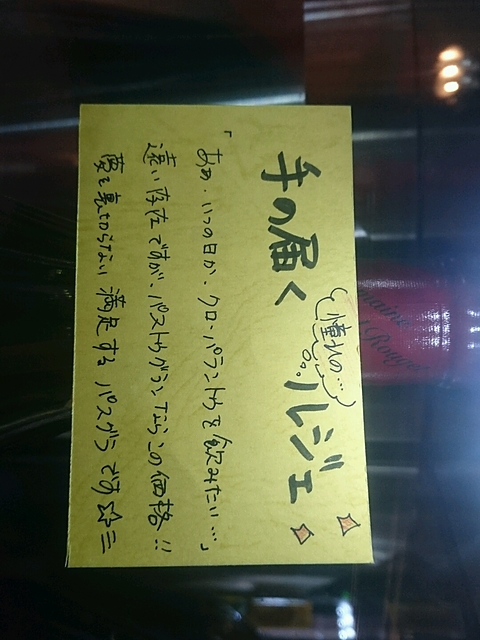 手の届く
憧れの…
ルジェ
「あぁ・いつの日か、クロ・パラントゥを飲みたい…」
遠い存在ですが、パストゥグランならこの価格!!
夢を裏切らない 満足する パスグラです☆彡
Rouge